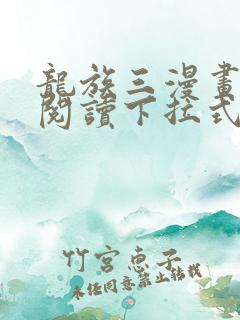 龍族三漫畫
閱讀下拉式
竹宮惠子
未經同意禁止轉載